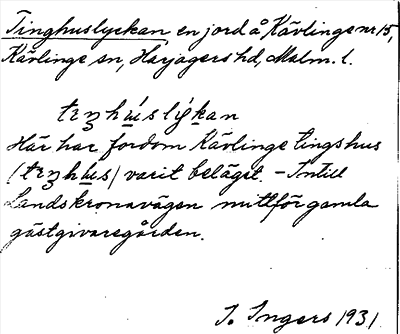 Tinghuslyckan en jord å Kävlinge nr 15,
Kävlinge sn, Harjagers hd, Malm. l.
Här har fordom Kävlinge tingshus
varit beläget. - Intill
Landskronavägen mittför gamla
gästgivaregården.
I. Ingers 1931